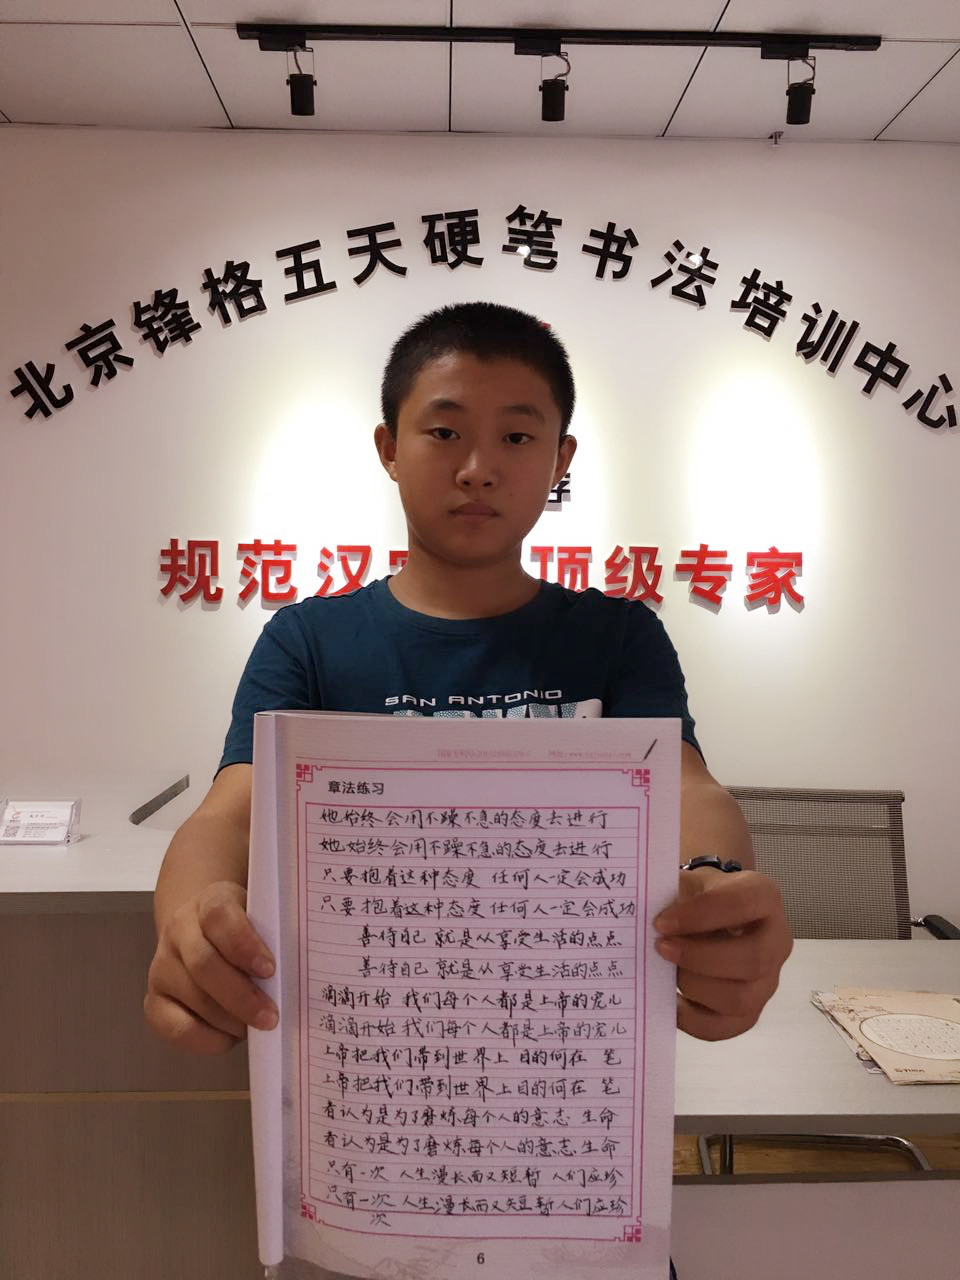 北京锋格五天硬笔书法培训中心
规范汉 顶级专家
SAN ANTONIO
章法练习
她始终会用不躁不急的态度去进行
她始终会用不躁不急的态度去进行
只要抱着这种态度 任何人一定会成功
只要抱着这种态度 任何人一定会成功
善待自己 就是从享受生活的点点
善待自己 就是从享受生活的点点
滴滴开始 我们每个人都是上帝的宠儿
滴滴开始 我们每个人都是上帝的宠儿
上帝把我们带到世界上 目的何在 笔
上帝把我们带到世界上 目的何在 笔
者认为是为了磨炼每个人的意志 生命
者认为是为了磨炼每个人的意志 生命
只有一次 人生漫长而又短暂 人们应珍
只有一次 人生漫长而又短暂 人们应珍
次
6